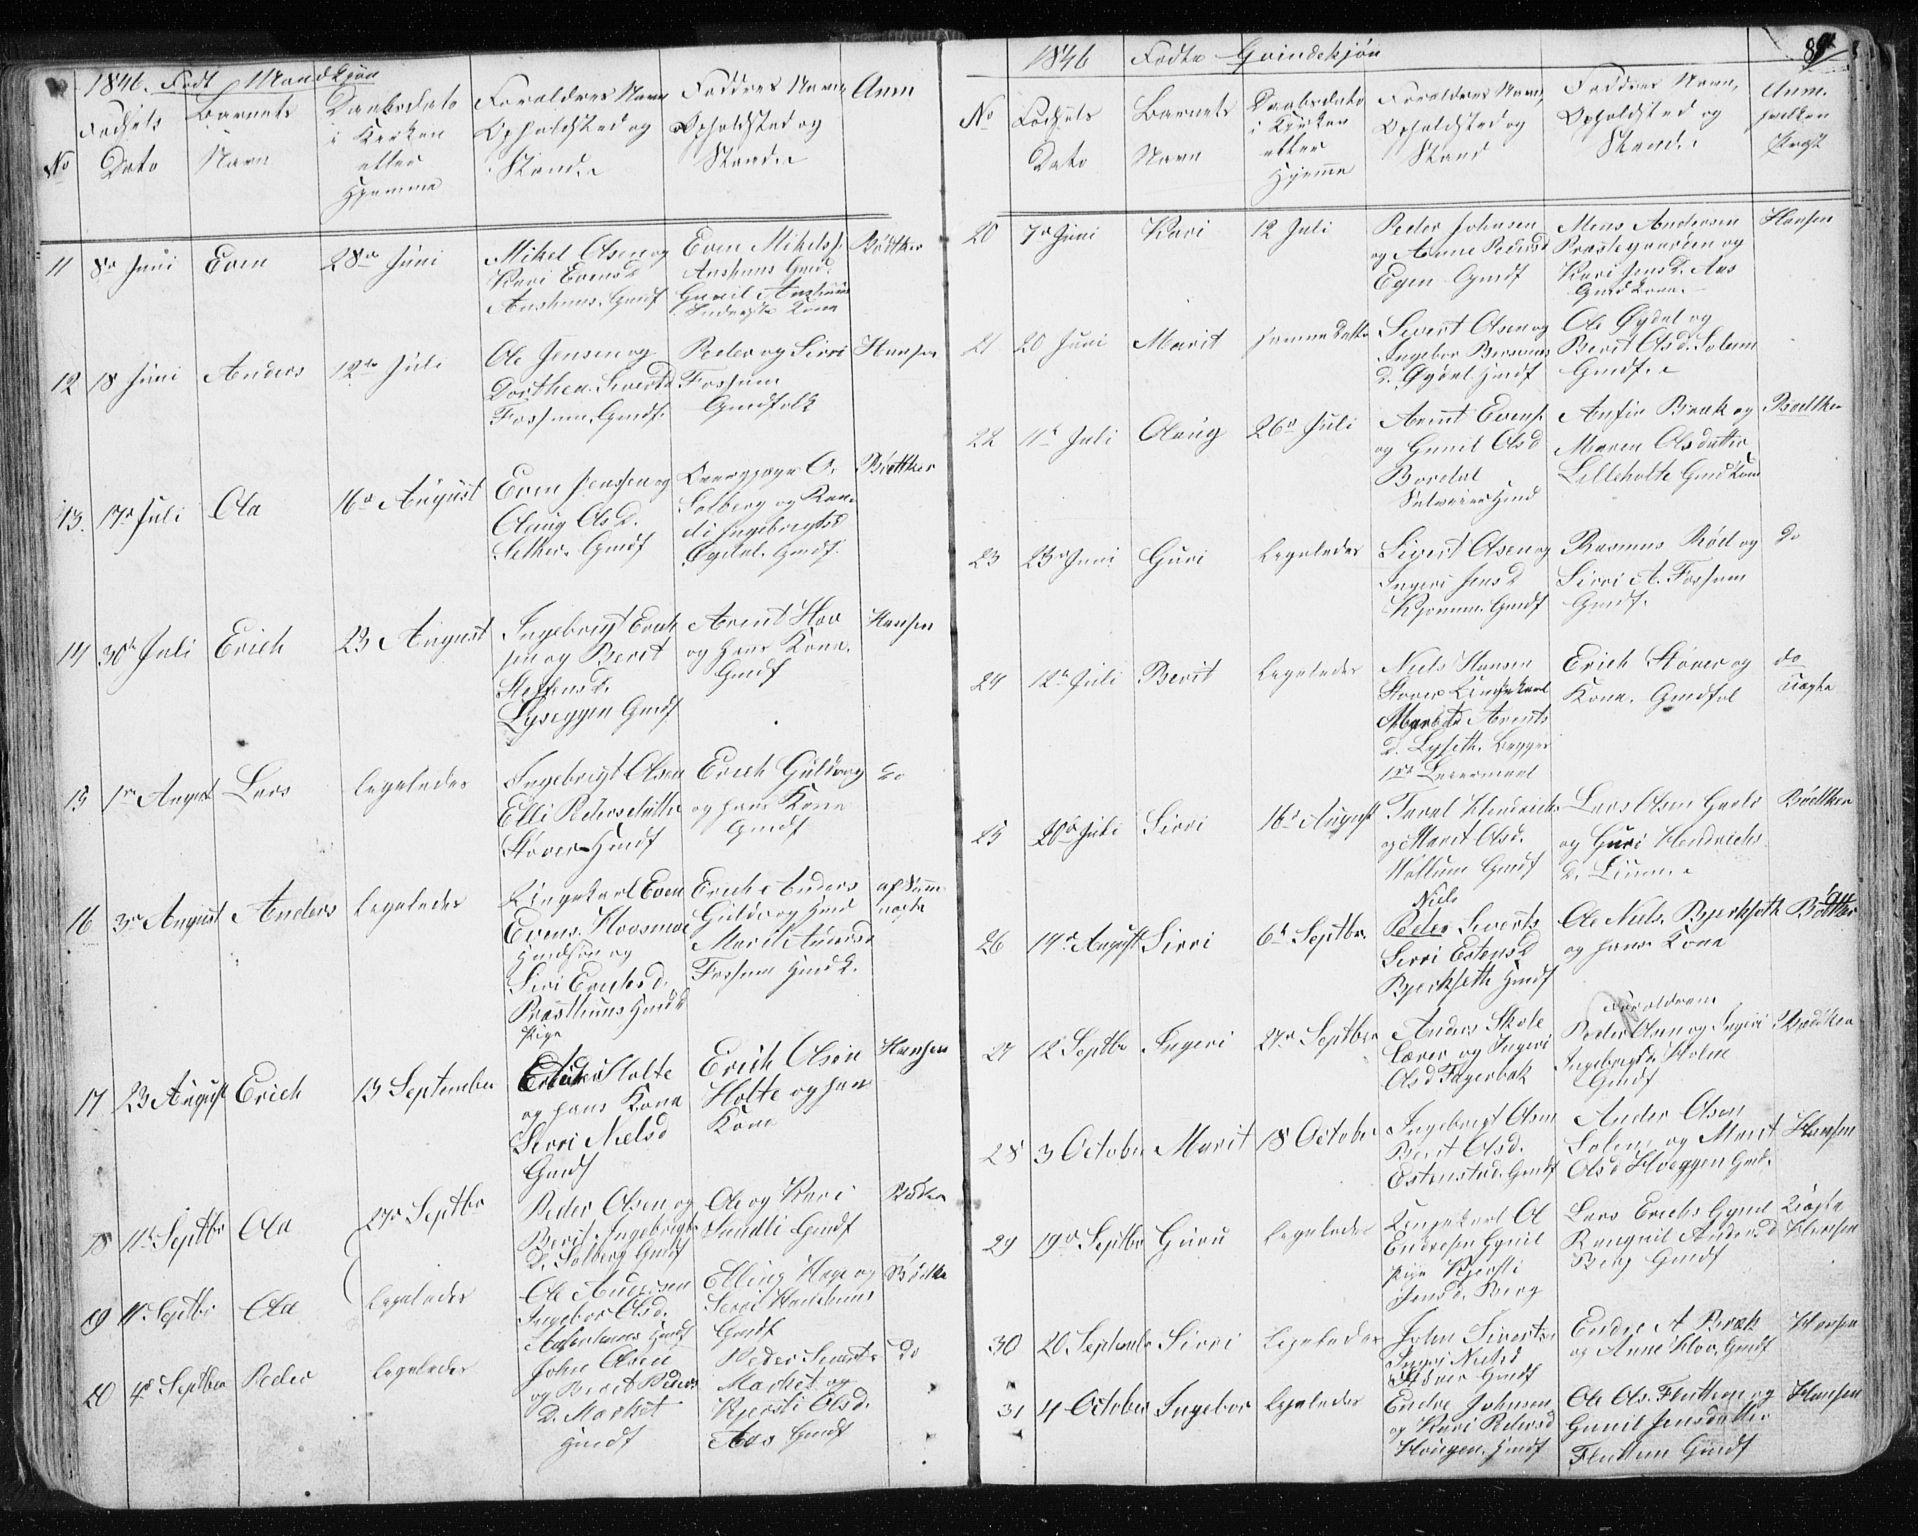 1846. Født Mandkjøn
No
Fødsels
Dato
Barnets
Navn
Daabsdato
i Kirken
eller
Hjemme
Forældres Navn
Opholdsted og
Stand
Faddres Navn
Opholdsted og
Stand
Anm
11 8de Juni Even 28de Juni
Mikel Olsen og
Kari Evensd
Aushuus. Gmdf
Even Mikelss.
Aushuus Gmd.
Gunil Aushuus
Kone
Bødtker
12 18 Juni Anders 12te Juli
Ole Jensen og
Dorthea Sivertsd
Fossum. Gmdf.
Peder og Sirri
Fossum
Gmdfolk
Hansen
13. 17de Juli Ola 16de August
Even Jenssen og
Olaug Olsd.
Gmdf
Solberg og Ran
di Ingebrigtsd
Øydal. Gmdf.
Bødtker
14 30te Juli Erich 23 August
Ingebrigt Erich
sen og Berit
Steffensd.
Lyseggen Gmdf
Arent Hov
og hans Kone.
Gmdf
Hansen
15 1ste August Lars ligeledes
Ingebrigt Olsen
Elli Pedersdatter
Støver Hmdf
Erich Guldvog
og hans Kone
Gmdf
do
16 3de August Anders ligeledes
Ungekarl Even
Evens. Hovsmoe
Hmdsøn og
Siri Erichsd.
Præsthuus Hmds
Pige
Erich Anders
Guldvog Hmd
Marit Andersd
Fossum Hmdk.
af Samme
uægte
17 23 August Erich 13 September
Holte
og hans Kone
Sirri Nielsd
Gmdf
Erich Olsen
Holte og han
Kone
Hansen
18 11te Septbr Ola 27de Septbr
Peder Olsen og
Berit Ingebrigts
d. Solberg Gmdf
Ole og Kari
Sandli Gmdf
19 11 Septbr Ola ligeledes
Ole Andersen
Ingebor Olsd.
Hmdf
Elling Hage og
Sirri
Gmdf
Bødtker
20 4de Septbr Peder ligeledes
John Olsen
og Berit Peders
d. Market
Hmdf
Peder Siverts
Market og
Kjersti Olsd.
Aas Gmdf
do
1846 Fødte Qvindekjøn
89
No
Fødsels
Dato
Barnets
Navn
Daabsdato
i Kirken
eller
Hjemme
Forældres Navn,
Opholdsted og
Stand
Faddres Navn,
Opholdsted og
Stand.
Anm.
hvilken
Præst
20 7de Juni Kari 12 Juli
Peder Johnsen
og Anne Pedersd
Egen Gmdf
Mons Andersen
Præstegaarden og
Kari Jensd. Aas
Gmd Kone.
Hansen
21 20 Juni Marit samme Datto
Sivert Olsen og
Ingebor
d. Øydal Hmdf
Ole Øydal og
Berit Olsd. Solem
Gmdf.
22 11te Juli Olaug 26de Juli
Arent Evens.
og Gunil Olsd
Boredal
Selveier Hmd
Anfin Bræk og
Maren Olsdatter
Lilleholte Gmd Kone
Bødtker
23 23de Juni Guri ligeledes
Sivert Olsen og
Ingeri Jensd
Gmdf
Rasmus Røed og
Sirri A. Fossum
Gmdf.
do
24 12te Juli Berit ligeledes
Niels Hansen
Støver Ungekarl
Marit Arents
d. Lyseth. begges
1ste Leiermaal
Erich Støver og
Kone. Gmdfol
do
uægte
25 20de Juli Sirri 16de August
Taral Hendrichs
og Marit Olsd.
Wollum Gmdf
Lars Olsen
og Guri Hendrichs
d.
Bødtker
26 14de August Sirri 6te Septbr.
Niels
Peder Siverts
Sirri Estensd
Bjerkseth Hmdf
Ole Niels. Bjerkseth
og hans Kone
Bødtker
27 12 Septbr Ingeri 27de Septber
Anders Skole
lærer og Ingeri
Olsd Fagerbak
Forældrene
Peder Olsen og Ingeri
Ingebrigtsd Holem
Gmdf
Bødtker
28 3 October Marit 18 October
Ingebrigt Olsen
Berit Olsd.
Estenstad. Gmdf
Ander Olsen
Solem og Marit
Olsd Hoeggen Gmd.
Hansen
29 19de Septbr Guru ligeledes
Ungekarl Ol
Endresen
Pige Kjersti
Jensd. Berg
Lars Erichs
Rangnil Andersd
Berg Gmdf
Uægte
Hansen
30 20 Septembr Sirri ligeledes
John Sivertsen
Ingeri Nielsd
Støver Hmdf
Endre A Bræk
og Anne Hov. Gmdf
Hansen
31 4 October Ingebor ligeledes
Endre Johnsen
og Kari Pedersd
Hougen. Hmdf
Ole Ols. Fluttum og
Gunil Jensdatter
Fluttum Gmdf
Hansen